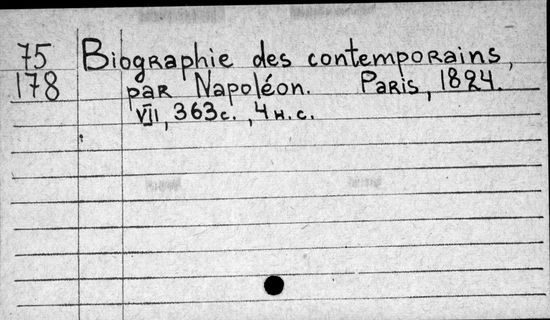 75 Biographie des contemporains,
178 par Napoléon. Paris, 1824.
VII, 363c., 4н.c.